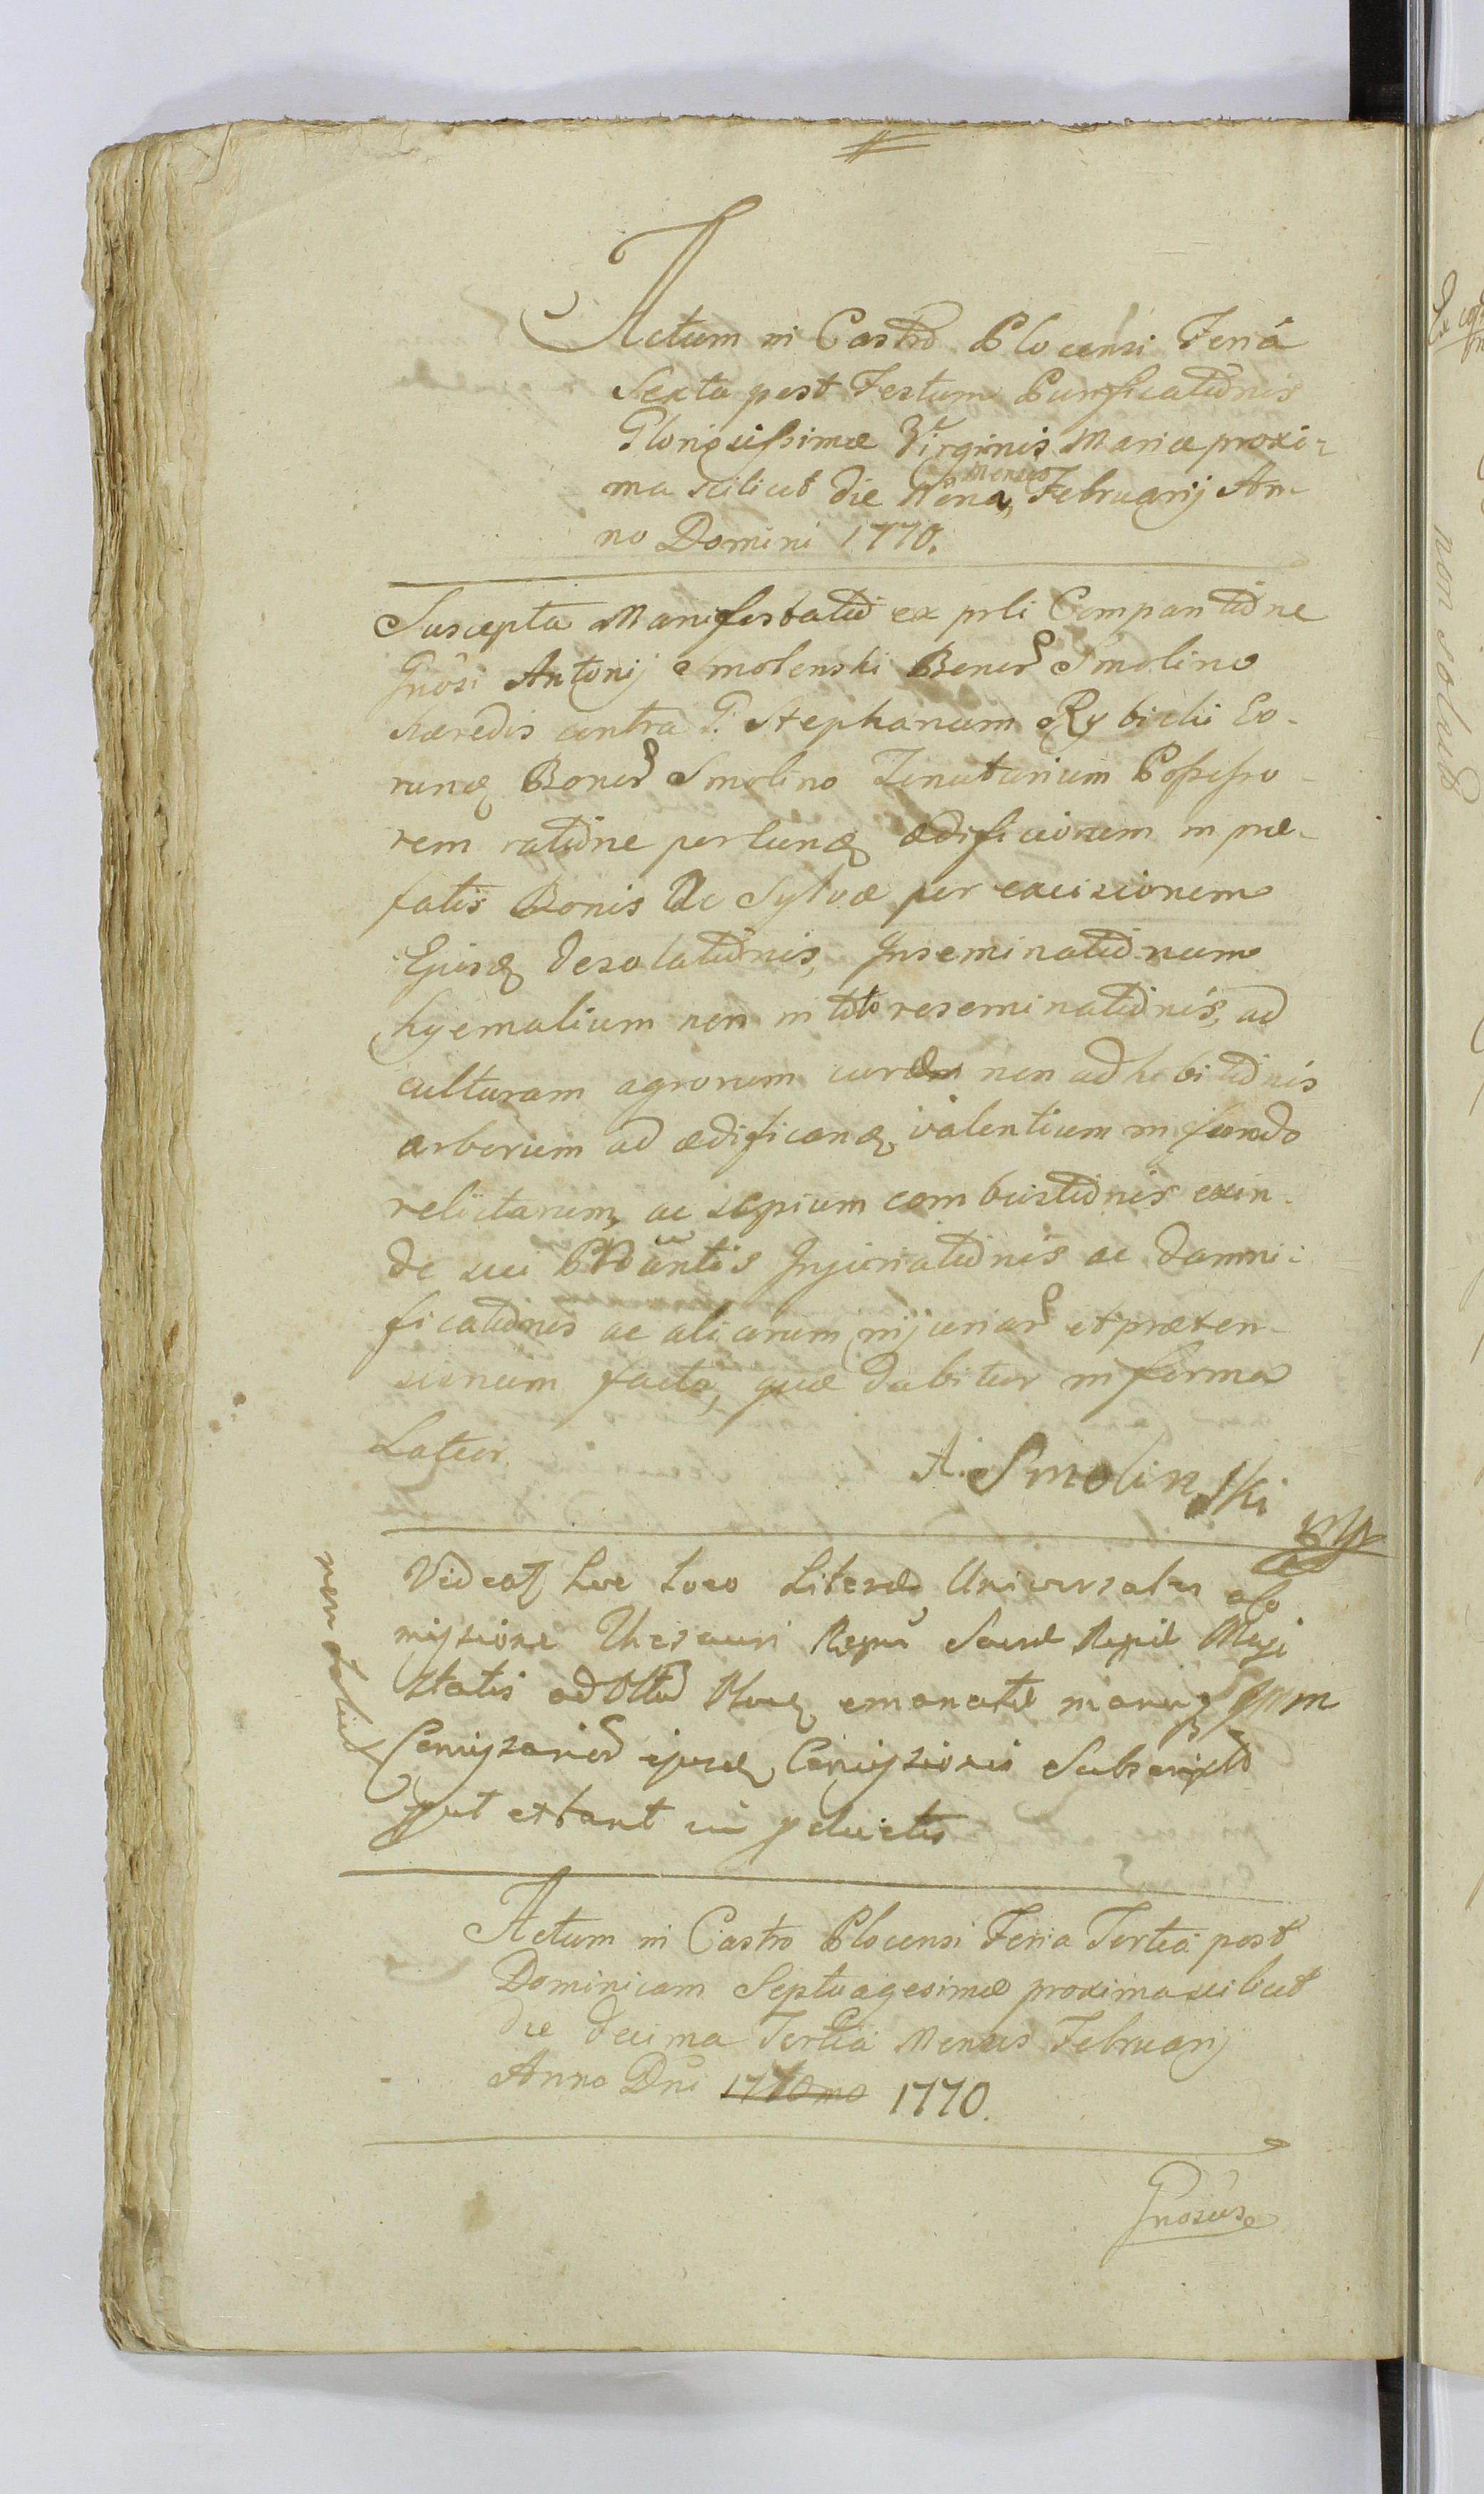 Actum in Castro Plocensi Feria
Sexta post Festum Purificationis
Gloriosissimæ Virginis Mariæ proxi=
ma scilicet die Nona Mensis Februarij An-
no Domini 1770.
Suscepta Manifestatio ex prli Comparitione
Gnosi Antonij Smolenski Bonor Smolino
Hæredis contra G. Stephanum Rybicki Eo-
rund Bonor Smolino Tenutarium Possesso-
rem ratione per eund ædificiorum in præ-
fatis Bonis Ac Sylvæ per excisionem
Ejusd desolationis, Inseminationum
hyemalium non in toto reseminationis, ad
culturam agrorum curæ non adhibitionis
arborum ad ædificand valentium in fundo
relictarum, ac sepium combustionis exin-
de sui Injuriationis ac damni=
ficationis ac aliarum injuriar et præten-
sionum facta, quæ dabitur in forma
Latior.
A. Smolinski
mp
Videat hoc loco Literæ Universales a Co
missione Thesauri Regni Sacræ Regiæ Maje
statis ad emanatæ manu
Comissarior ejusd Comissionis Subscripto
put extant in
non solut
Actum in Castro Plocensi Feria Tertia post
Dominicam Septuagesimæ proxima scilicet
die decima Tertia Mensis Februarij
Anno Dni 1770mo 1770.
Gnosus
non solut